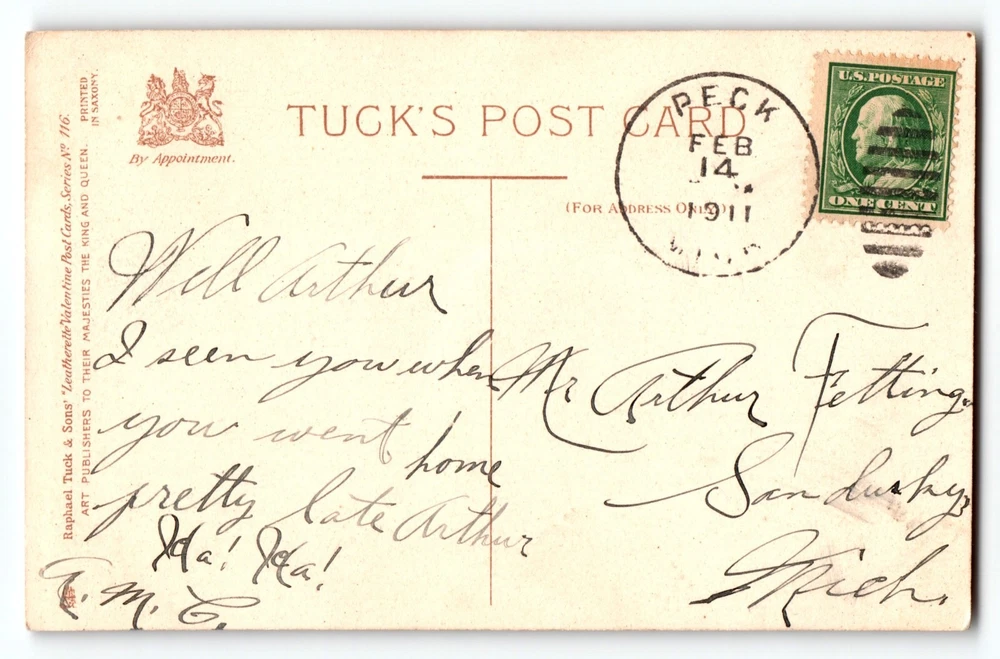 TUCK'S POST CARD
By Appointment.
(FOR ADDRESS ONLY)
Raphael Tuck & Sons' "Leatherette Valentine Post Cards, Series No 116.
ART PUBLISHERS TO THEIR MAJESTIES THE KING AND QUEEN.
PRINTED
IN SAXONY.
PECK
FEB
14
1911
MICH
U.S. POSTAGE
ONE CENT
Well Arthur
I seen you when
you went home
pretty late Arthur
Ha! Ha!
M. C.
Mr Arthur Fetting
Sandusky
Mich.